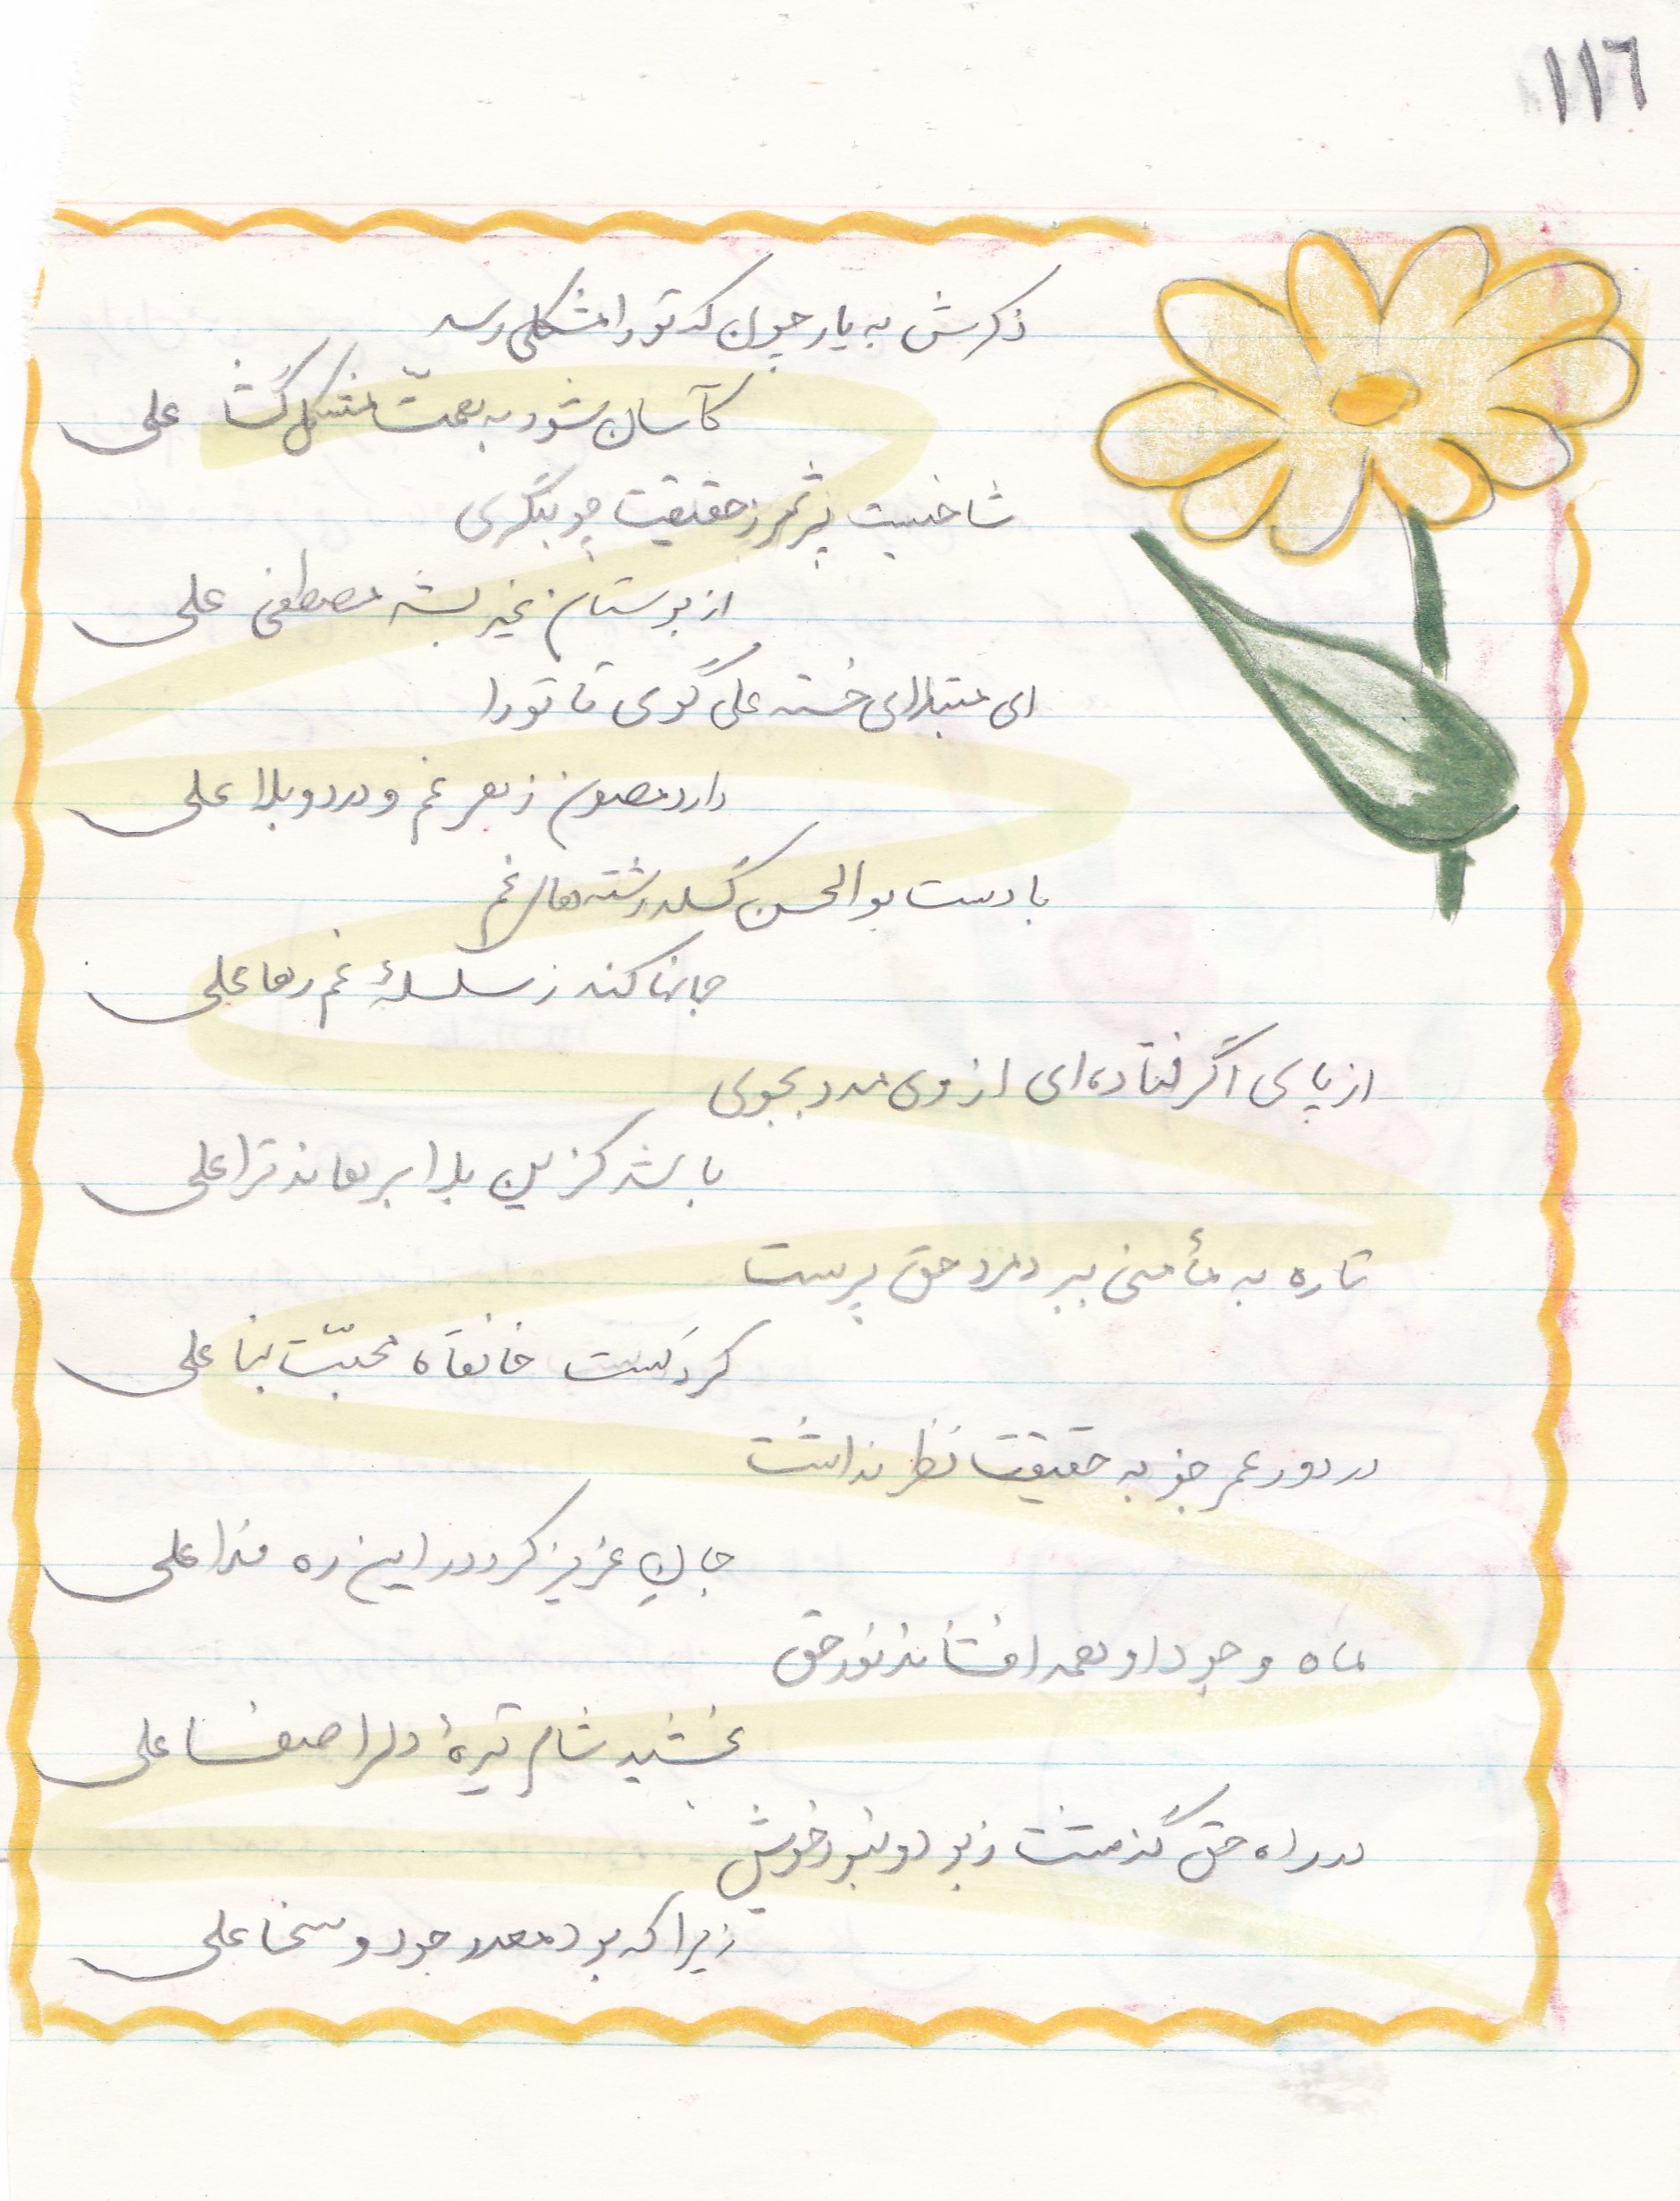 ١١٦
ذکرش به یار چون که تو را مشکلی رسد
کآسان شود به همّت مشکل گشا علی
شاخیست پرثمر ز حقیقت چو بنگری
از بوستان مصطفی علی
ای مبتلا ای خسته علی گوی تا تو را
دارد مصون ز هر غم و درد و بلا علی
با دست بوالحسن گسلد رشته‌های غم
جانها کند ز سلسلهٔ غم رها علی
از پای اگر فتاده‌ای از وی مدد بجوی
باشد کزین بلا برهاند ترا علی
تا ره به مأمنی ببرد مرد حق پرست
کردست خانقاه محبّت بنا علی
در دور عمر جز به حقیقت نظر نداشت
جانِ عزیز کرد در این ره فدا علی
ماه وجود او همه افشاند نور حق
بخشید شام تیرهٔ دلرا صفا علی
در راه حق گذشت ز بود و نبود خویش
زیرا که بود معدن جود و سخا علی